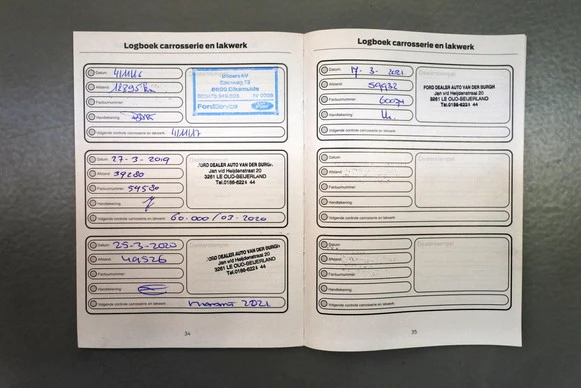 Logboek carrosserie en lakwerk
Datum: 4/11/16
Afstand: 18295 km
Factuurnummer:
Handtekening:
Volgende controle carrosserie en lakwerk: 4/11/17
8600 Diksmuide
FordService Ford
Datum: 27-3-2019
Afstand: 39280
Factuurnummer: 54580
Handtekening:
Volgende controle carrosserie en lakwerk: 60.000 / 03-2020
FORD DEALER AUTO VAN DER BURGH
Jan vd Heijdenstraat 20
3261 LE OUD-BEIJERLAND
Tel.0186-6221 44
Datum: 25-3-2020
Afstand: 49526
Factuurnummer:
Handtekening:
Volgende controle carrosserie en lakwerk: maart 2021
FORD DEALER AUTO VAN DER BURGH
Jan vd Heijdenstraat 20
3261 LE OUD-BEIJERLAND
Tel.0186-6221 44
34
Logboek carrosserie en lakwerk
Datum: 17-3-2021
Afstand: 59932
Factuurnummer: 60074
Handtekening:
Volgende controle carrosserie en lakwerk:
Dealerstempel
FORD DEALER AUTO VAN DER BURGH
Jan vd Heijdenstraat 20
3261 LE OUD-BEIJERLAND
Tel.0186-6221 44
Datum:
Afstand:
Factuurnummer:
Handtekening:
Volgende controle carrosserie en lakwerk:
Dealerstempel
Datum:
Afstand:
Factuurnummer:
Handtekening:
Volgende controle carrosserie en lakwerk:
Dealerstempel
35